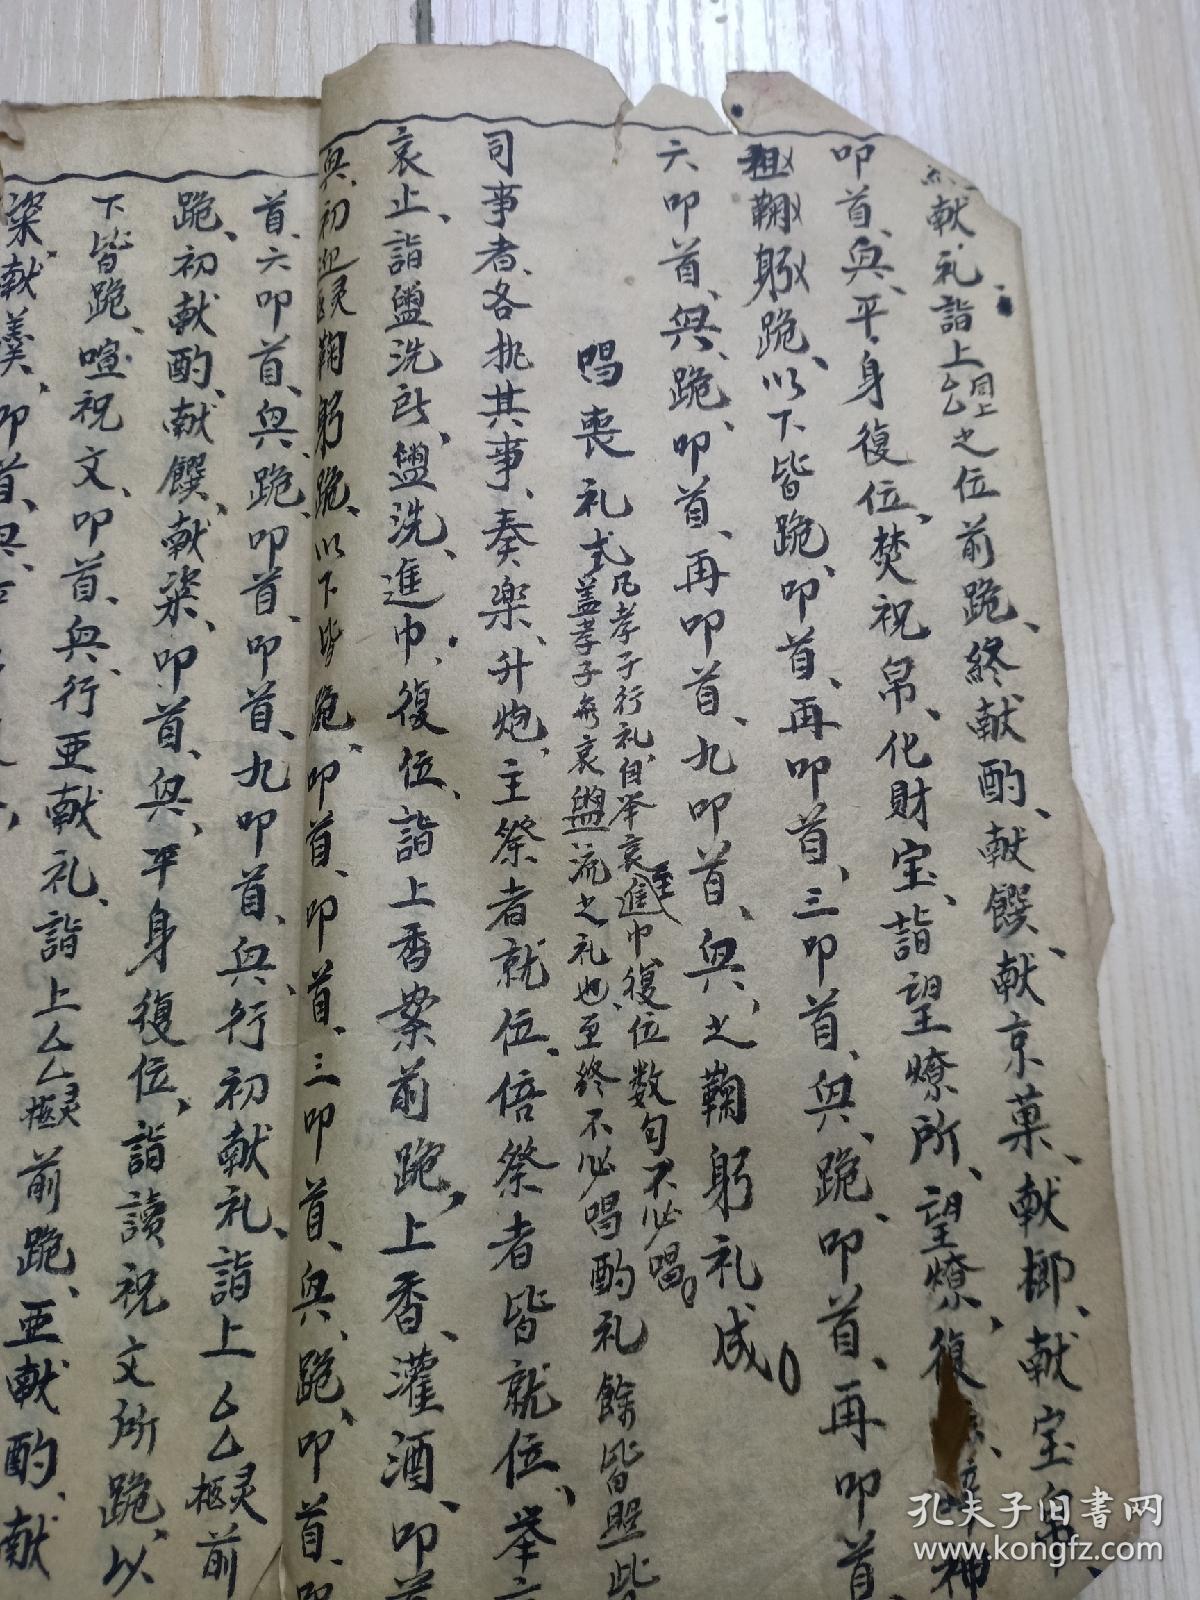 献礼、詣上厶厶同上之位前跪、終献酌、献饌、献京菓、献榔、献宝帛、
叩首、興、平身復位、焚祝帛、化財宝、詣望燎所、望燎、復
鞠躬跪、以下皆跪、叩首、再叩首、三叩首、興、跪、叩首、再叩首、
六叩首、興、跪、叩首、再叩首、九叩首、興、之鞠躬礼成。
唱喪礼式
凡孝子行礼、自举哀至進巾復位数句不必唱。
盖孝子無哀盥流之礼也、至終不必唱酌礼餘皆照此
司事者、各执其事、奏樂、升炮、主祭者就位、倍祭者皆就位、举
哀止、詣盥洗所、盥洗、進巾、復位、詣上香案前跪、上香、灌酒、叩首
興、初迎灵柩鞠躬跪、以下皆跪、叩首、叩首、三叩首、興、跪、叩首、叩
首、六叩首、興、跪、叩首、叩首、九叩首、興、行初献礼、詣上厶厶灵柩前
跪、初献酌、献饌、献粢、叩首、興、平身復位、詣讀祝文所跪、以
下皆跪、喧祝文、叩首、興、行亚献礼、詣上厶厶灵柩前跪、亚献酌、献
粢、献羹、叩首、興、
孔夫子旧书网
www.kongfz.com